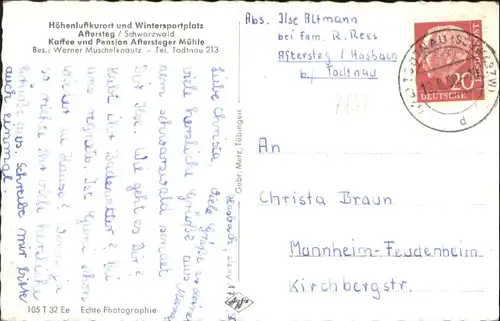 Höhenluftkurort und Wintersportplatz
Aftersteg / Schwarzwald
Kaffee und Pension Aftersteger Mühle
Bes.: Werner Muschelknautz - Tel. Todtnau 213
Abs. Ilse Altmann
bei Fam. R. Rees
Aftersteg / Hasbach
b/ Todtnau
TODTNAU (SCHWARZW)
d
20
DEUTSCHE
BUNDESPOST
Hasbach, den
Liebe Christa
viele herzliche Grüße aus
dem Schwarzwald sendet
Dir Ilse. Wie geht es Dir?
Habt ihr Badewetter? Bei
uns regnet's. Ist schon
wieder zu Hause? Wenn ja
so richte ihr viele herzliche
Grüße aus. Schreibe mir bitte
auch einmal.
Viele Grüße
Gebr. Metz, Tübingen
An
Christa Braun
Mannheim-Feudenheim
Kirchbergstr.
105 T 32 Ee Echte Photographie